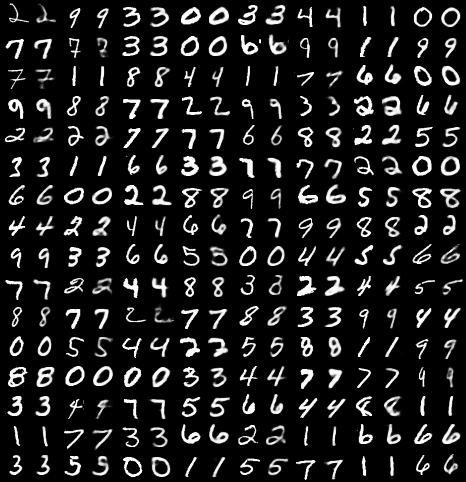 2 2 9 9 3 3 0 0 3 3 4 4 1 1 0 0
7 7 7 7 3 3 0 0 6 6 9 9 1 1 9 9
7 7 1 1 8 8 4 4 1 1 7 7 6 6 0 0
9 9 8 8 7 7 2 2 9 9 3 3 2 2 6 6
2 2 2 2 7 7 7 7 6 6 8 8 2 2 5 5
3 3 1 1 6 6 3 3 7 7 7 7 2 2 0 0
6 6 0 0 2 2 8 8 9 9 6 6 5 5 8 8
4 4 2 2 4 4 6 6 7 7 9 9 8 8 2 2
9 9 3 3 6 6 5 5 0 0 4 4 5 5 6 6
7 7 2 2 4 4 8 8 3 3 2 2 4 4 5 5
8 8 7 7 2 2 7 7 8 8 3 3 9 9 4 4
0 0 5 5 4 4 2 2 5 5 8 8 1 1 9 9
8 8 0 0 0 0 3 3 4 4 7 7 7 7 9 9
3 3 4 4 7 7 5 5 6 6 4 4 8 8 1 1
1 1 7 7 3 3 6 6 2 2 1 1 6 6 6 6
3 3 5 5 0 0 1 1 5 5 7 7 1 1 6 6